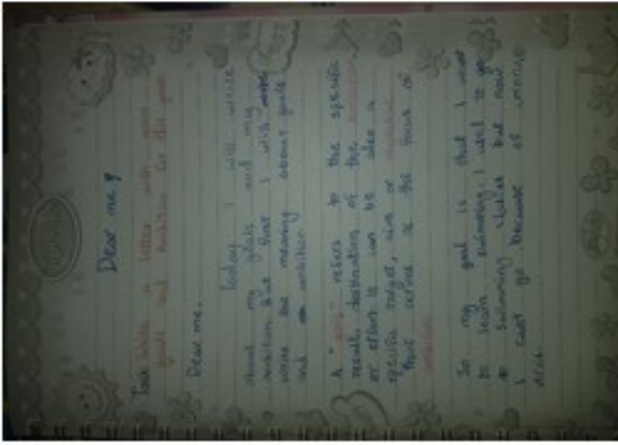 Dear me!
Task: Write a letter with your
goals and Ambition for this year
Dear me,
Today I will write
about my goals and my
ambition. But first I will
write the meaning about goals
and ambition.
A "goal" refers to the specific
result, destination of the
or effort. It can be also a
specific target, aim or
that serves as the focus of
ambition.
So my goal is that I want
to learn swimming. I used to go
to swimming classes but now
I can't go because of